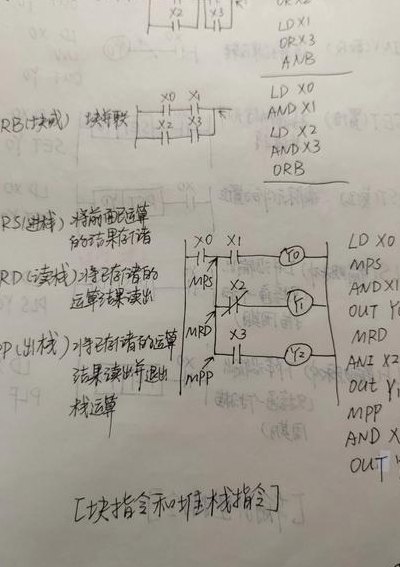 X2 X3
OR X2
LD X1
OR X3
ANB
X0 X1
X2 X3
RB(块或) 块并联
LD X0
AND X1
LD X2
AND X3
ORB
RS(进栈) 将前面运算
的结果存储
RD(读栈) 将已存储的
运算结果读出
PP(出栈) 将已存储的运算
结果读出并退出
栈运算
X0 X1 Y0
MPS
X2 Y1
MRD
X3 Y2
MPP
LD X0
MPS
AND X1
OUT Y0
MRD
ANI X2
OUT Y1
MPP
AND X
OUT
[块指令和堆栈指令]